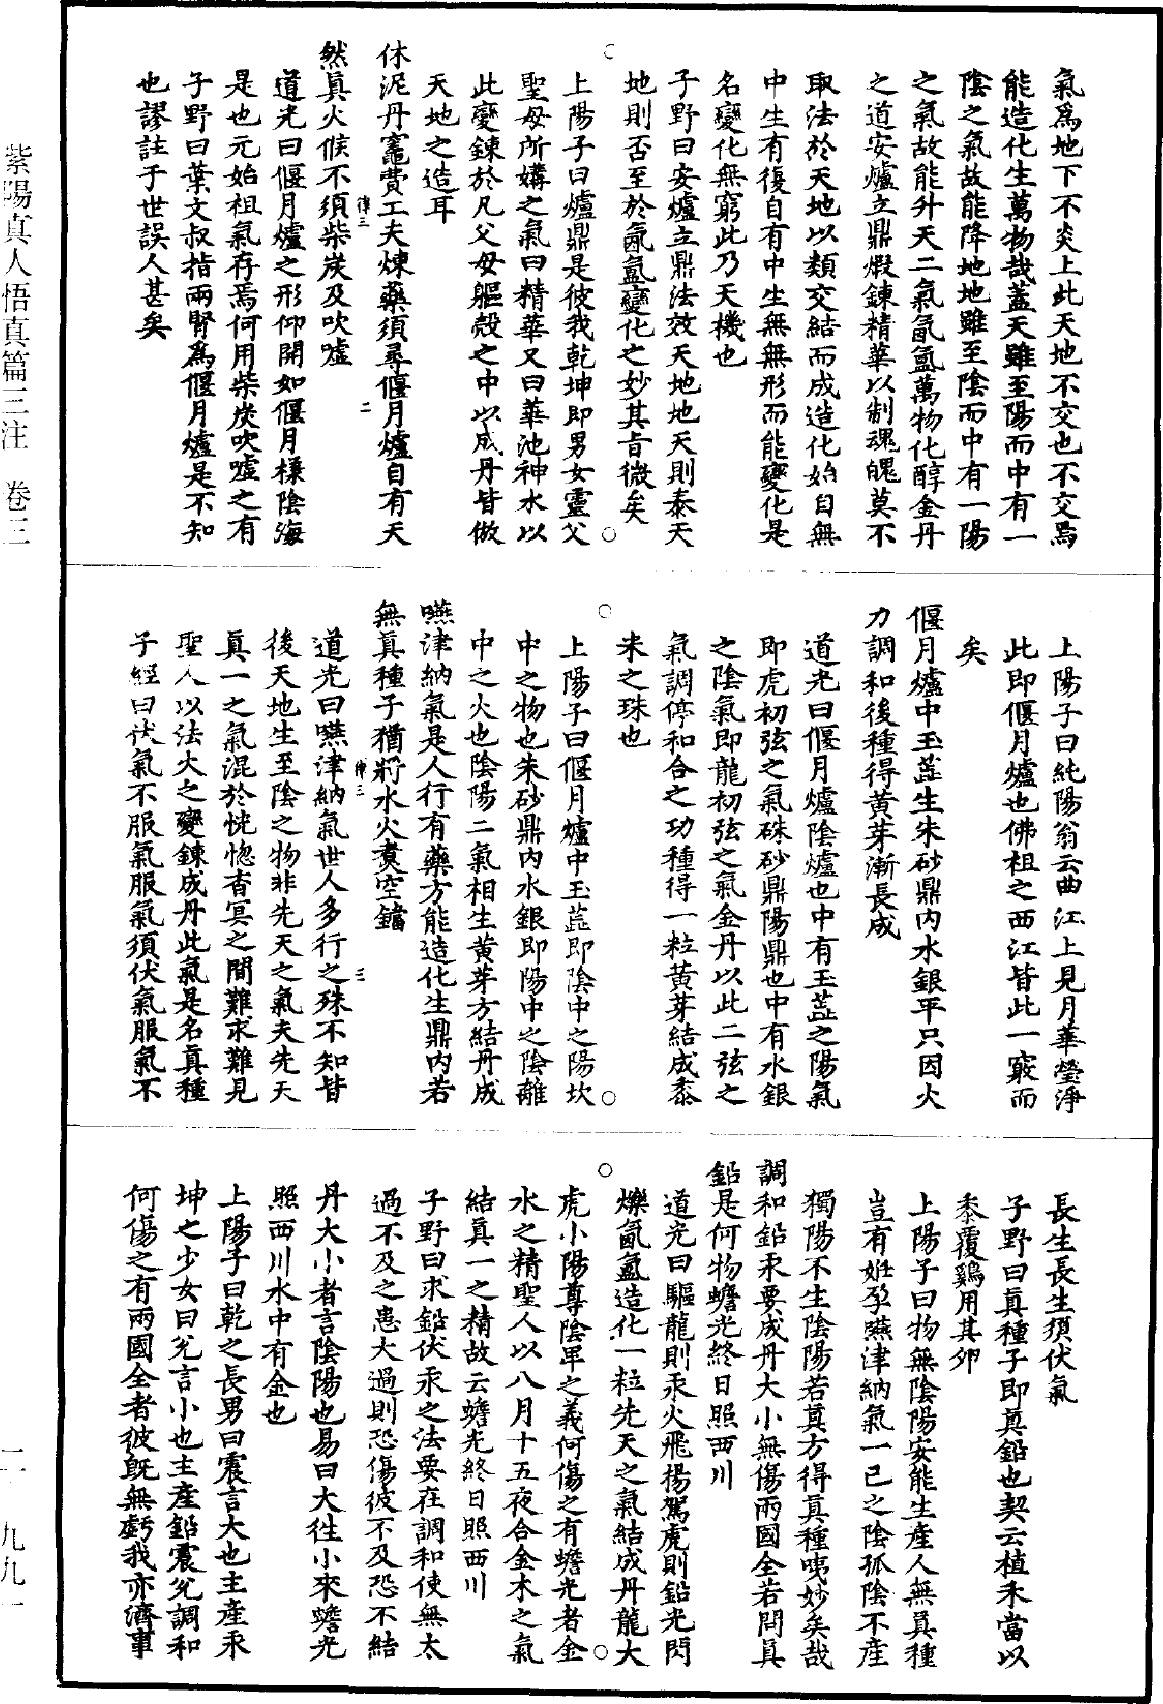 氣爲地下不炎上此天地不交也不交焉
能造化生萬物哉蓋天雖至陽而中有一
陰之氣故能降地地雖至陰而中有一陽
之氣故能升天二氣氤氳萬物化醇金丹
之道安爐立鼎煅鍊精華以制魂魄莫不
取法於天地以類交結而成造化始自無
中生有復自有中生無無形而能變化是
名變化無窮此乃天機也
子野曰安爐立鼎法效天地地天則泰天
地則否至於氤氳變化之妙其旨微矣
上陽子曰爐鼎是彼我乾坤即男女靈父
聖母所媾之氣曰精華又曰華池神水以
此變鍊於凡父母軀殼之中以成丹皆倣
天地之造耳
休泥丹竈費工夫煉藥須尋偃月爐自有天
然真火候不須柴炭及吹噓
道光曰偃月爐之形仰開如偃月樣陰海
是也元始祖氣存焉何用柴炭吹噓之有
子野曰葉文叔指兩腎爲偃月爐是不知
也謬註于世誤人甚矣
律三
二
上陽子曰純陽翁云曲江上見月華瑩淨
此即偃月爐也佛祖之西江皆此一竅而
矣
偃月爐中玉蕋生朱砂鼎內水銀平只因火
力調和後種得黄芽漸長成
道光曰偃月爐陰爐也中有玉蕋之陽氣
即虎初弦之氣硃砂鼎陽鼎也中有水銀
之陰氣即龍初弦之氣金丹以此二弦之
氣調停和合之功種得一粒黄芽結成黍
米之珠也
上陽子曰偃月爐中玉蕋即陰中之陽坎
中之物也朱砂鼎內水銀即陽中之陰離
中之火也陰陽二氣相生黄芽方結丹成
嚥津納氣是人行有藥方能造化生鼎內若
無真種子猶將水火煑空鐺
道光曰嚥津納氣世人多行之殊不知皆
後天地生至陰之物非先天之氣夫先天
真一之氣混於恍惚杳冥之間難求難見
聖人以法火之變鍊成丹此氣是名真種
子經曰伏氣不服氣服氣須伏氣服氣不
律三
三
長生長生須伏氣
子野曰真種子即真鉛也契云植禾當以
黍覆鷄用其卵
上陽子曰物無陰陽安能生產人無真種
豈有姙孕嚥津納氣一己之陰孤陰不產
獨陽不生陰陽若真方得真種噫妙矣哉
調和鉛汞要成丹大小無傷兩國全若問真
鉛是何物蟾光終日照西川
道光曰驅龍則汞火飛揚駕虎則鉛光閃
爍氤氳造化一粒先天之氣結成丹龍大
虎小陽尊陰卑之義何傷之有蟾光者金
水之精聖人以八月十五夜合金木之氣
結真一之精故云蟾光終日照西川
子野曰求鉛伏汞之法要在調和使無太
過不及之患大過則恐傷彼不及恐不結
丹大小者言陰陽也易曰大往小來蟾光
照西川水中有金也
上陽子曰乾之長男曰震言大也主產汞
坤之少女曰兌言小也主產鉛震兌調和
何傷之有兩國全者彼既無虧我亦濟事
紫陽真人悟真篇三注　卷三